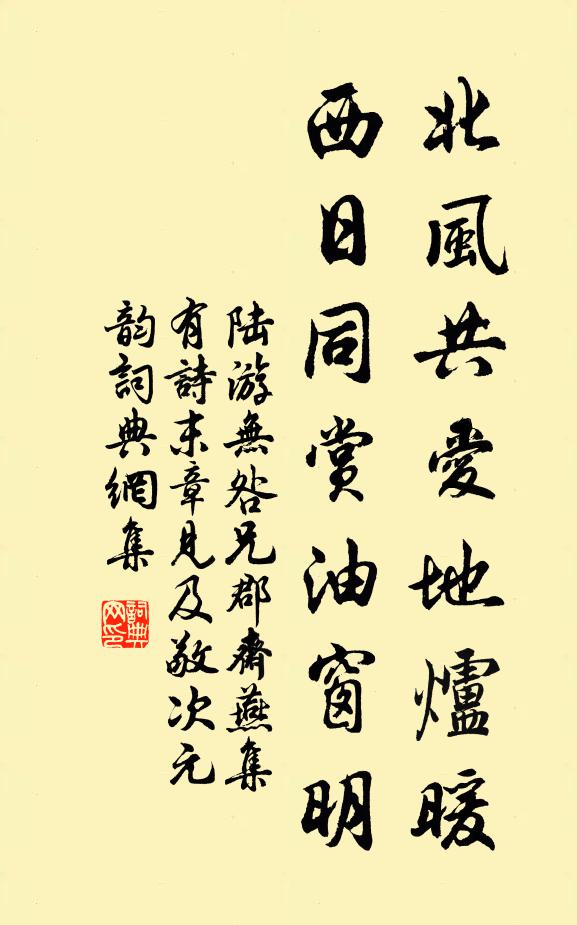 北風共愛地爐暖
西日同賞油窗明
陸游無咎兄郡齋燕集
有詩末章見及敬次元
韵詞典網集
詞典网印